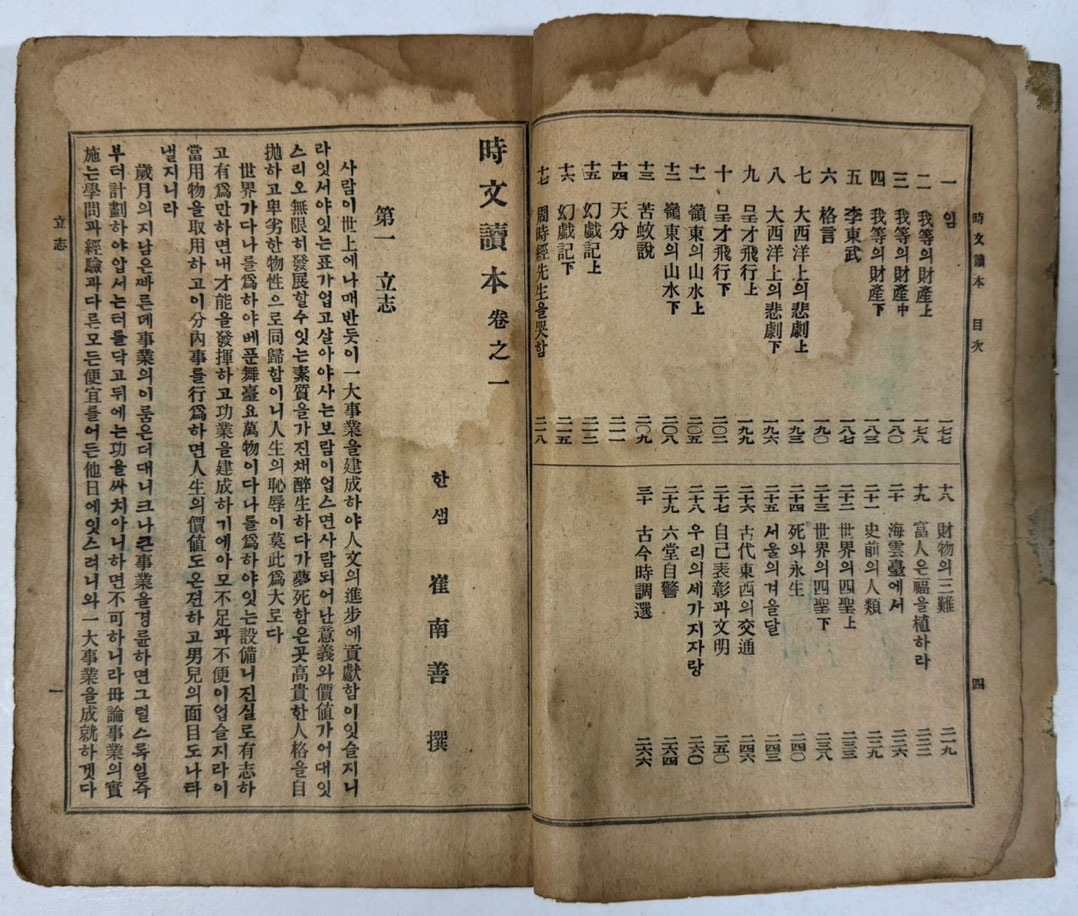 時文讀本 目次
四
一 임 一七七
二 我等의財產上 一七八
三 我等의財產中 一八〇
四 我等의財產下 一八三
五 李東武 一八七
六 格言 一九〇
七 大西洋上의悲劇上 一九三
八 大西洋上의悲劇下 一九六
九 呈才飛行上 一九九
十 呈才飛行下 二〇二
十一 嶺東의山水上 二〇五
十二 嶺東의山水下 二〇八
十三 苦蚊說 二〇九
十四 天分 二一一
十五 幻戲記上 二一三
十六 幻戲記下 二一五
十七 周時經先生을哭함 二一八
十八 財物의三難 二一九
十九 富人은福을植하라 二二三
二十 海雲臺에서 二二六
二十一 史前의人類 二二九
二十二 世界의四聖上 二三三
二十三 世界의四聖下 二三八
二十四 死와永生 二四〇
二十五 서울의겨울달 二四三
二十六 古代東西의交通 二四六
二十七 自己表彰과文明 二五〇
二十八 우리의세가지자랑 二六〇
二十九 六堂自警 二六四
三十 古今時調選 二六六
時文讀本 卷之一
한샘 崔南善 撰
第一 立志
사람이世上에나매반듯이一大事業을建成하야人文의進步에貢獻함이잇슬지니
라잇서야잇는표가업고살아야사는보람이업스면사람되어난意義와價値가어대잇
스리오無限히發展할수잇는素質을가진채醉生하다가夢死함은곳高貴한人格을自
抛하고卑劣한物性으로同歸함이니人生의恥辱이莫此爲大로다
世界가다나를爲하야베푼舞臺요萬物이다나를爲하야잇는設備니진실로有志하
고有爲만하면내才能을發揮하고功業을建成하기에아모不足과不便이업슬지라이
當用物을取用하고이分內事를行爲하면人生의價値도온젼하고男兒의面目도나타
낼지니라
歲月의지남은빠른데事業의이룸은더대니크나큰事業을경륜하면그럴스록일즉
부터計劃하야압서는터를닥고뒤에는功을싸치아니하면不可하니라毋論事業의實
施는學問과經驗과다른모든便宜를어든他日에잇스려니와一大事業을成就하겟다
立志
一